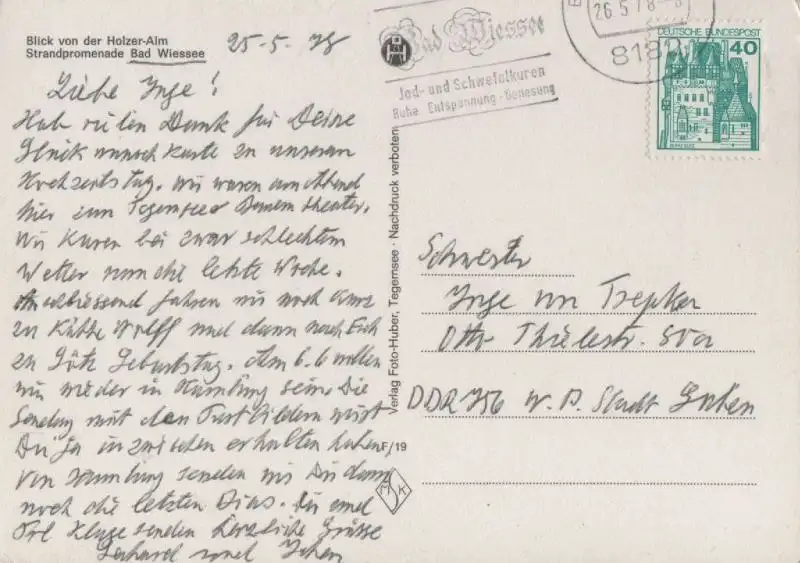 Blick von der Holzer-Alm
Strandpromenade Bad Wiessee
25-5-78
Liebe Inge!
Hab vielen Dank für Deine
Glückwunschkarte zu unserem
Hochzeitstag. Wir waren am Abend
hier zum Tegernseer Bauerntheater.
Wir Kuren bei zwar schlechtem
Wetter nun die letzte Woche.
Anschliessend fahren wir noch kurz
zu Käthe Wolff und dann nach
zu Götz Geburtstag. Am 6.6 wollen
wir wieder in Hamburg sein. Die
Sendung mit den wirst
Du ja inzwischen erhalten haben
Von Hamburg senden wir Dir dann
noch die letzten Dias. Dir und
Frl Kluge senden herzliche Grüsse
Gerhard und
Verlag Foto-Huber, Tegernsee · Nachdruck verboten
F/19
M K
Bad Wiessee
Jod- und Schwefelkuren
Ruhe Entspannung · Genesung
26.5.78
8182
DEUTSCHE BUNDESPOST
40
BURG ELTZ
Schwester
Inge von Trepka
Otto Thielestr.
DDR 756 W. P. Stadt Guben